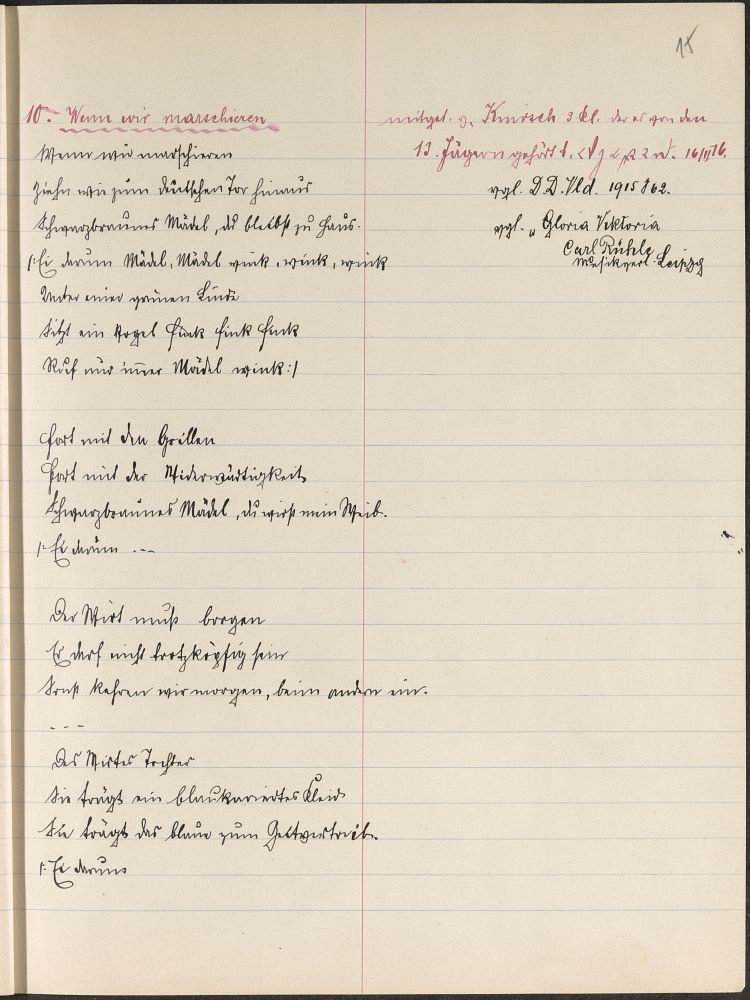 15
10. Wenn wir marschieren
Wenn wir marschieren
Ziehn wir zum deutschen Tor hinaus
Schwarzbraunes Mädel, du bleibst zu Haus.
/: Ei darum Mädel, Mädel wink, wink, wink
Unter einer grünen Linde
Sitzt ein Vogel Fink Fink Fink
Ruft nur immer Mädel wink :/
Fort mit den Grillen
Fort mit der Widerwärtigkeit
Schwarzbraunes Mädel, du wirst mein Weib.
/: Ei darum ---
Der Wirt muß borgen
Er darf nicht trotzköpfig sein
Sonst kehren wir morgen, beim andern ein.
---
Des Wirtes Tochter
Sie trägt ein blaukariertes Kleid
Sie trägt das blaue zum Zeitvertreib.
/: Ei darum
mitget. v. Knirsch 3 Kl. der es von den
13. Jägern gehört 16/II 16.
vgl. D.D. Vld. 1915 S 62.
vgl. „Gloria Viktoria
Carl Rühle
Musikverl. Leipzig